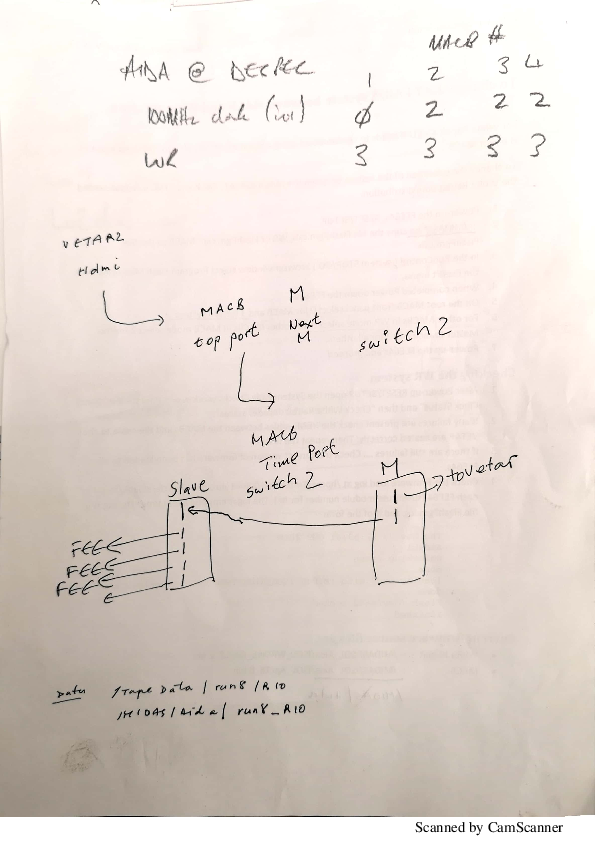 MACB #
AIDA @ DESPEC 1 2 3 4
100MHz clock (int) Ø 2 2 2
WR 3 3 3 3
VETAR2
Hdmi
MACB M
top port Next M
switch 2
MACB
Time Port
switch 2
Slave
M
tovetar
FEE
FEE
FEE
Data /TapeData/run8/R10
/MIDAS/Aida/run8_R10
Scanned by CamScanner